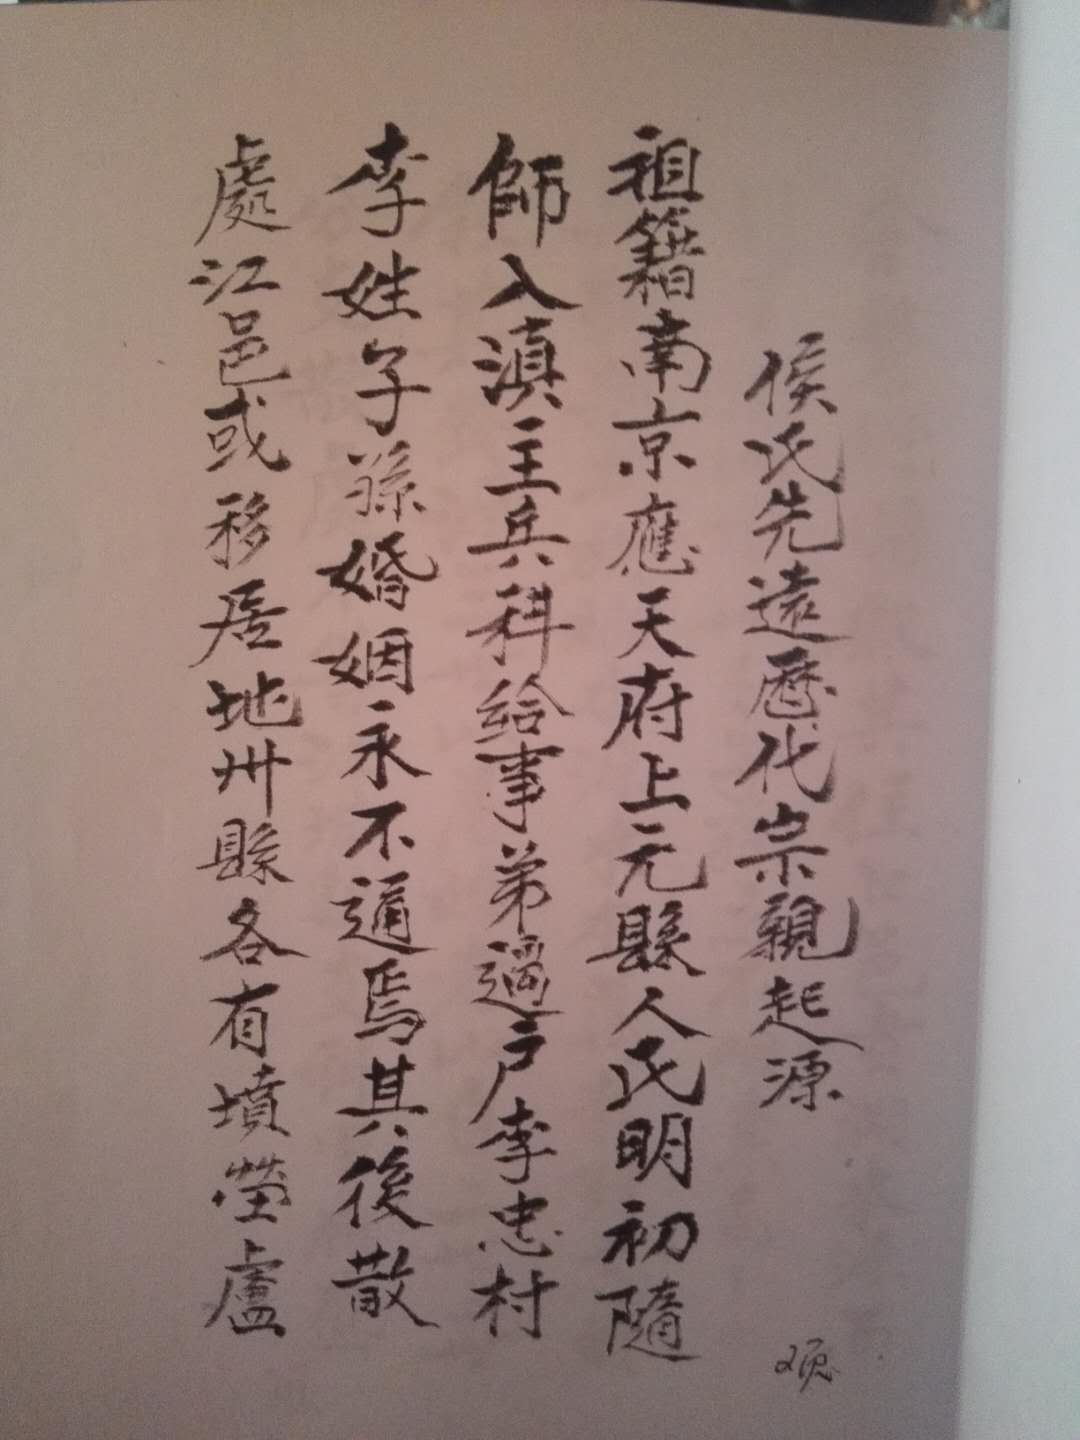 侯氏先遠歷代宗親起源
祖籍南京應天府上元縣人民明初隨
師入滇主兵科給事弟過戶李忠村
李姓子孫婚姻永不通焉其後散
處江邑或移居地州縣各有墳塋廬